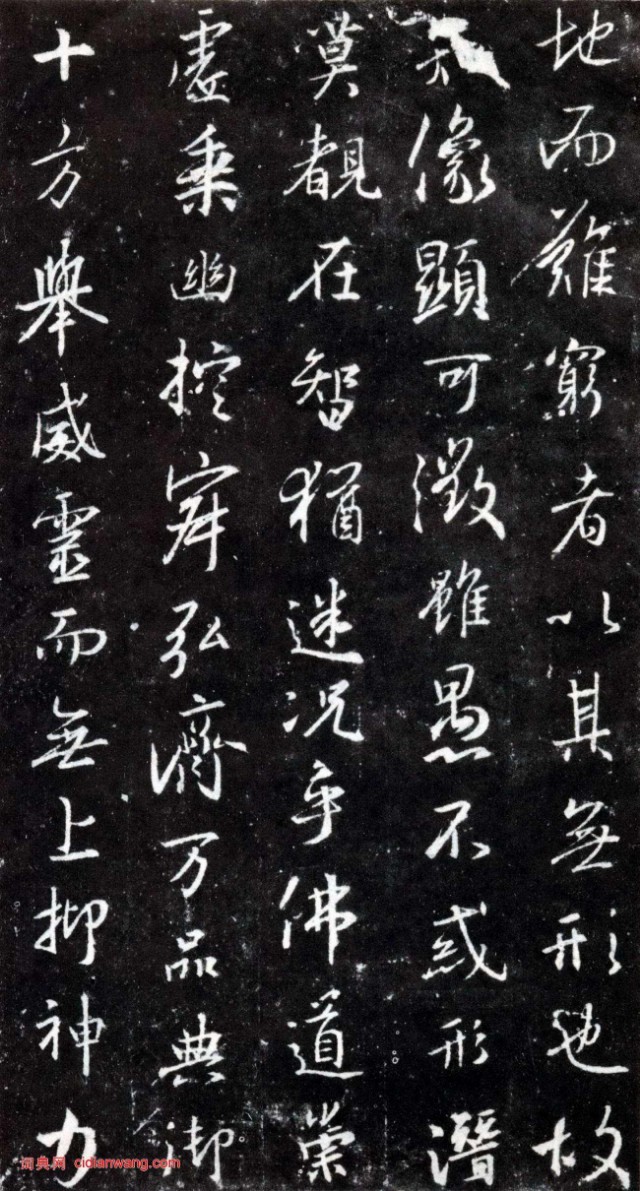 地而難窮者以其無形也故
像顯可徵雖愚不惑形潛
莫覩在智猶迷況乎佛道崇
虛乘幽控寂弘濟万品典御
十方舉威靈而無上抑神力
词典网 cidianwang.com